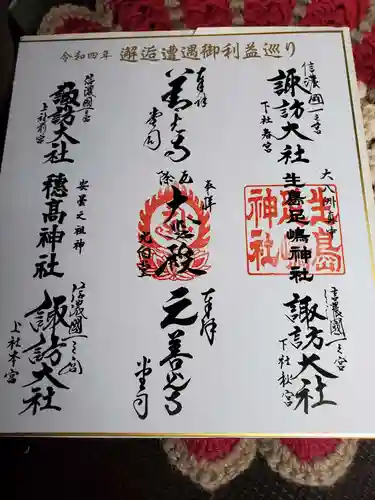 令和四年 邂逅遭遇御利益巡り
信濃國一之宮
諏訪大社
下社春宮
大八洲真中
生島足嶋神社
生島
神社
信濃國一之宮
諏訪大社
下社秋宮
奉拝
善光寺
堂司
奉拝
大日殿
北向堂
奉拝
元善光寺
堂司
信濃國一之宮
諏訪大社
上社前宮
安曇之祖神
穂高神社
信濃國一之宮
諏訪大社
上社本宮